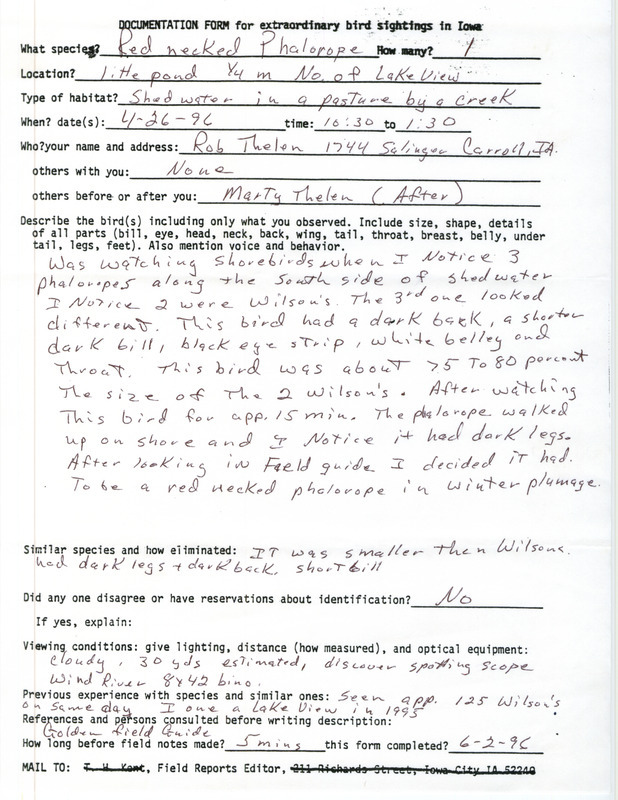 DOCUMENTATION FORM for extraordinary bird sightings in Iowa
What species? Red necked Phalorope How many? 1
Location? Little pond 1/4 m No. of Lake View
Type of habitat? Shed water in a pasture by a creek
When? date(s): 4-26-96 time: 10:30 to 1:30
Who? your name and address: Rob Thelen 1744 Salinger Carroll, IA.
others with you: None
others before or after you: Marty Thelen (After)
Describe the bird(s) including only what you observed. Include size, shape, details
of all parts (bill, eye, head, neck, back, wing, tail, throat, breast, belly, under
tail, legs, feet). Also mention voice and behavior.
Was watching shorebirds when I Notice 3
phaloropes along the South side of shed water
I Notice 2 were Wilson's. The 3rd one looked
different. This bird had a dark back, a shorter
dark bill, black eye strip, white belley and
Throat. This bird was about 75 To 80 percent
The size of The 2 Wilson's. After watching
This bird for app. 15 min. The phalorope walked
up on shore and I Notice it had dark legs.
After looking in Field guide I decided it had.
To be a red necked phalorope in winter plumage.
Similar species and how eliminated: IT was smaller then Wilsons.
had dark legs + dark back, short bill
Did any one disagree or have reservations about identification? No
If yes, explain:
Viewing conditions: give lighting, distance (how measured), and optical equipment:
Cloudy, 30 yds estimated, discover spotting scope
Wind River 8x42 bino.
Previous experience with species and similar ones: Seen app. 125 Wilson's
on same day I one a Lake View in 1995
References and persons consulted before writing description:
Golden field Guide
How long before field notes made? 5 mins this form completed? 6-2-96
MAIL TO: T. H. Kent, Field Reports Editor, 211 Richards Street, Iowa City IA 52240